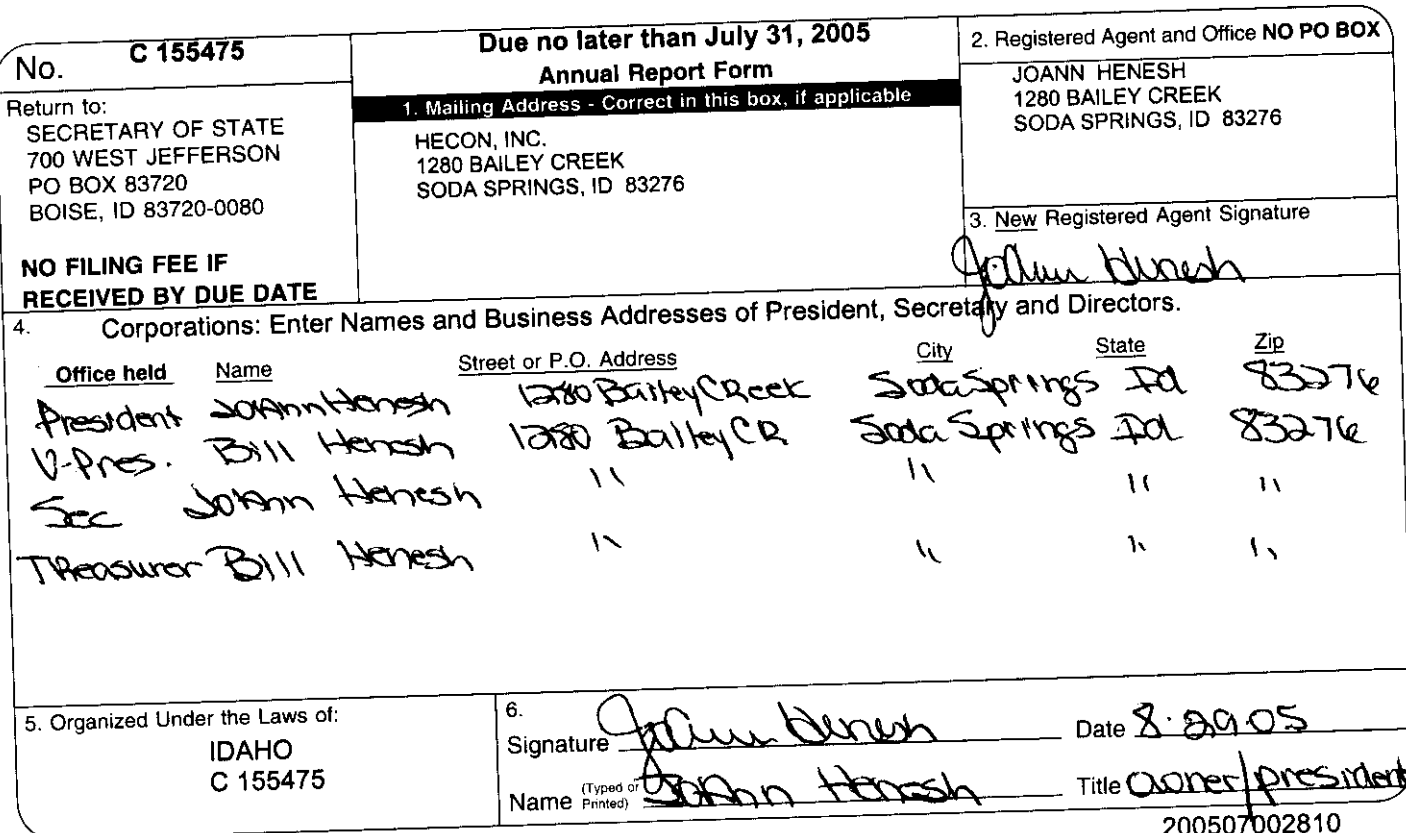 No. C 155475
Return to:
SECRETARY OF STATE
700 WEST JEFFERSON
PO BOX 83720
BOISE, ID 83720-0080
NO FILING FEE IF
RECEIVED BY DUE DATE
Due no later than July 31, 2005
Annual Report Form
1. Mailing Address - Correct in this box, if applicable
HECON, INC.
1280 BAILEY CREEK
SODA SPRINGS, ID 83276
2. Registered Agent and Office NO PO BOX
JOANN HENESH
1280 BAILEY CREEK
SODA SPRINGS, ID 83276
3. New Registered Agent Signature
JoAnn Henesh
4. Corporations: Enter Names and Business Addresses of President, Secretary and Directors.
Office held Name Street or P.O. Address City State Zip
President JoAnn Henesh 1280 Bailey CReek Soda Springs Id 83276
V-Pres. Bill Henesh 1280 Bailey CR Soda Springs Id 83276
Sec JoAnn Henesh " " " "
TReasurer Bill Henesh " " " "
5. Organized Under the Laws of:
IDAHO
C 155475
6.
Signature JoAnn Henesh Date 8.29.05
Name (Typed or Printed) JoAnn Henesh Title owner/president
200507002810